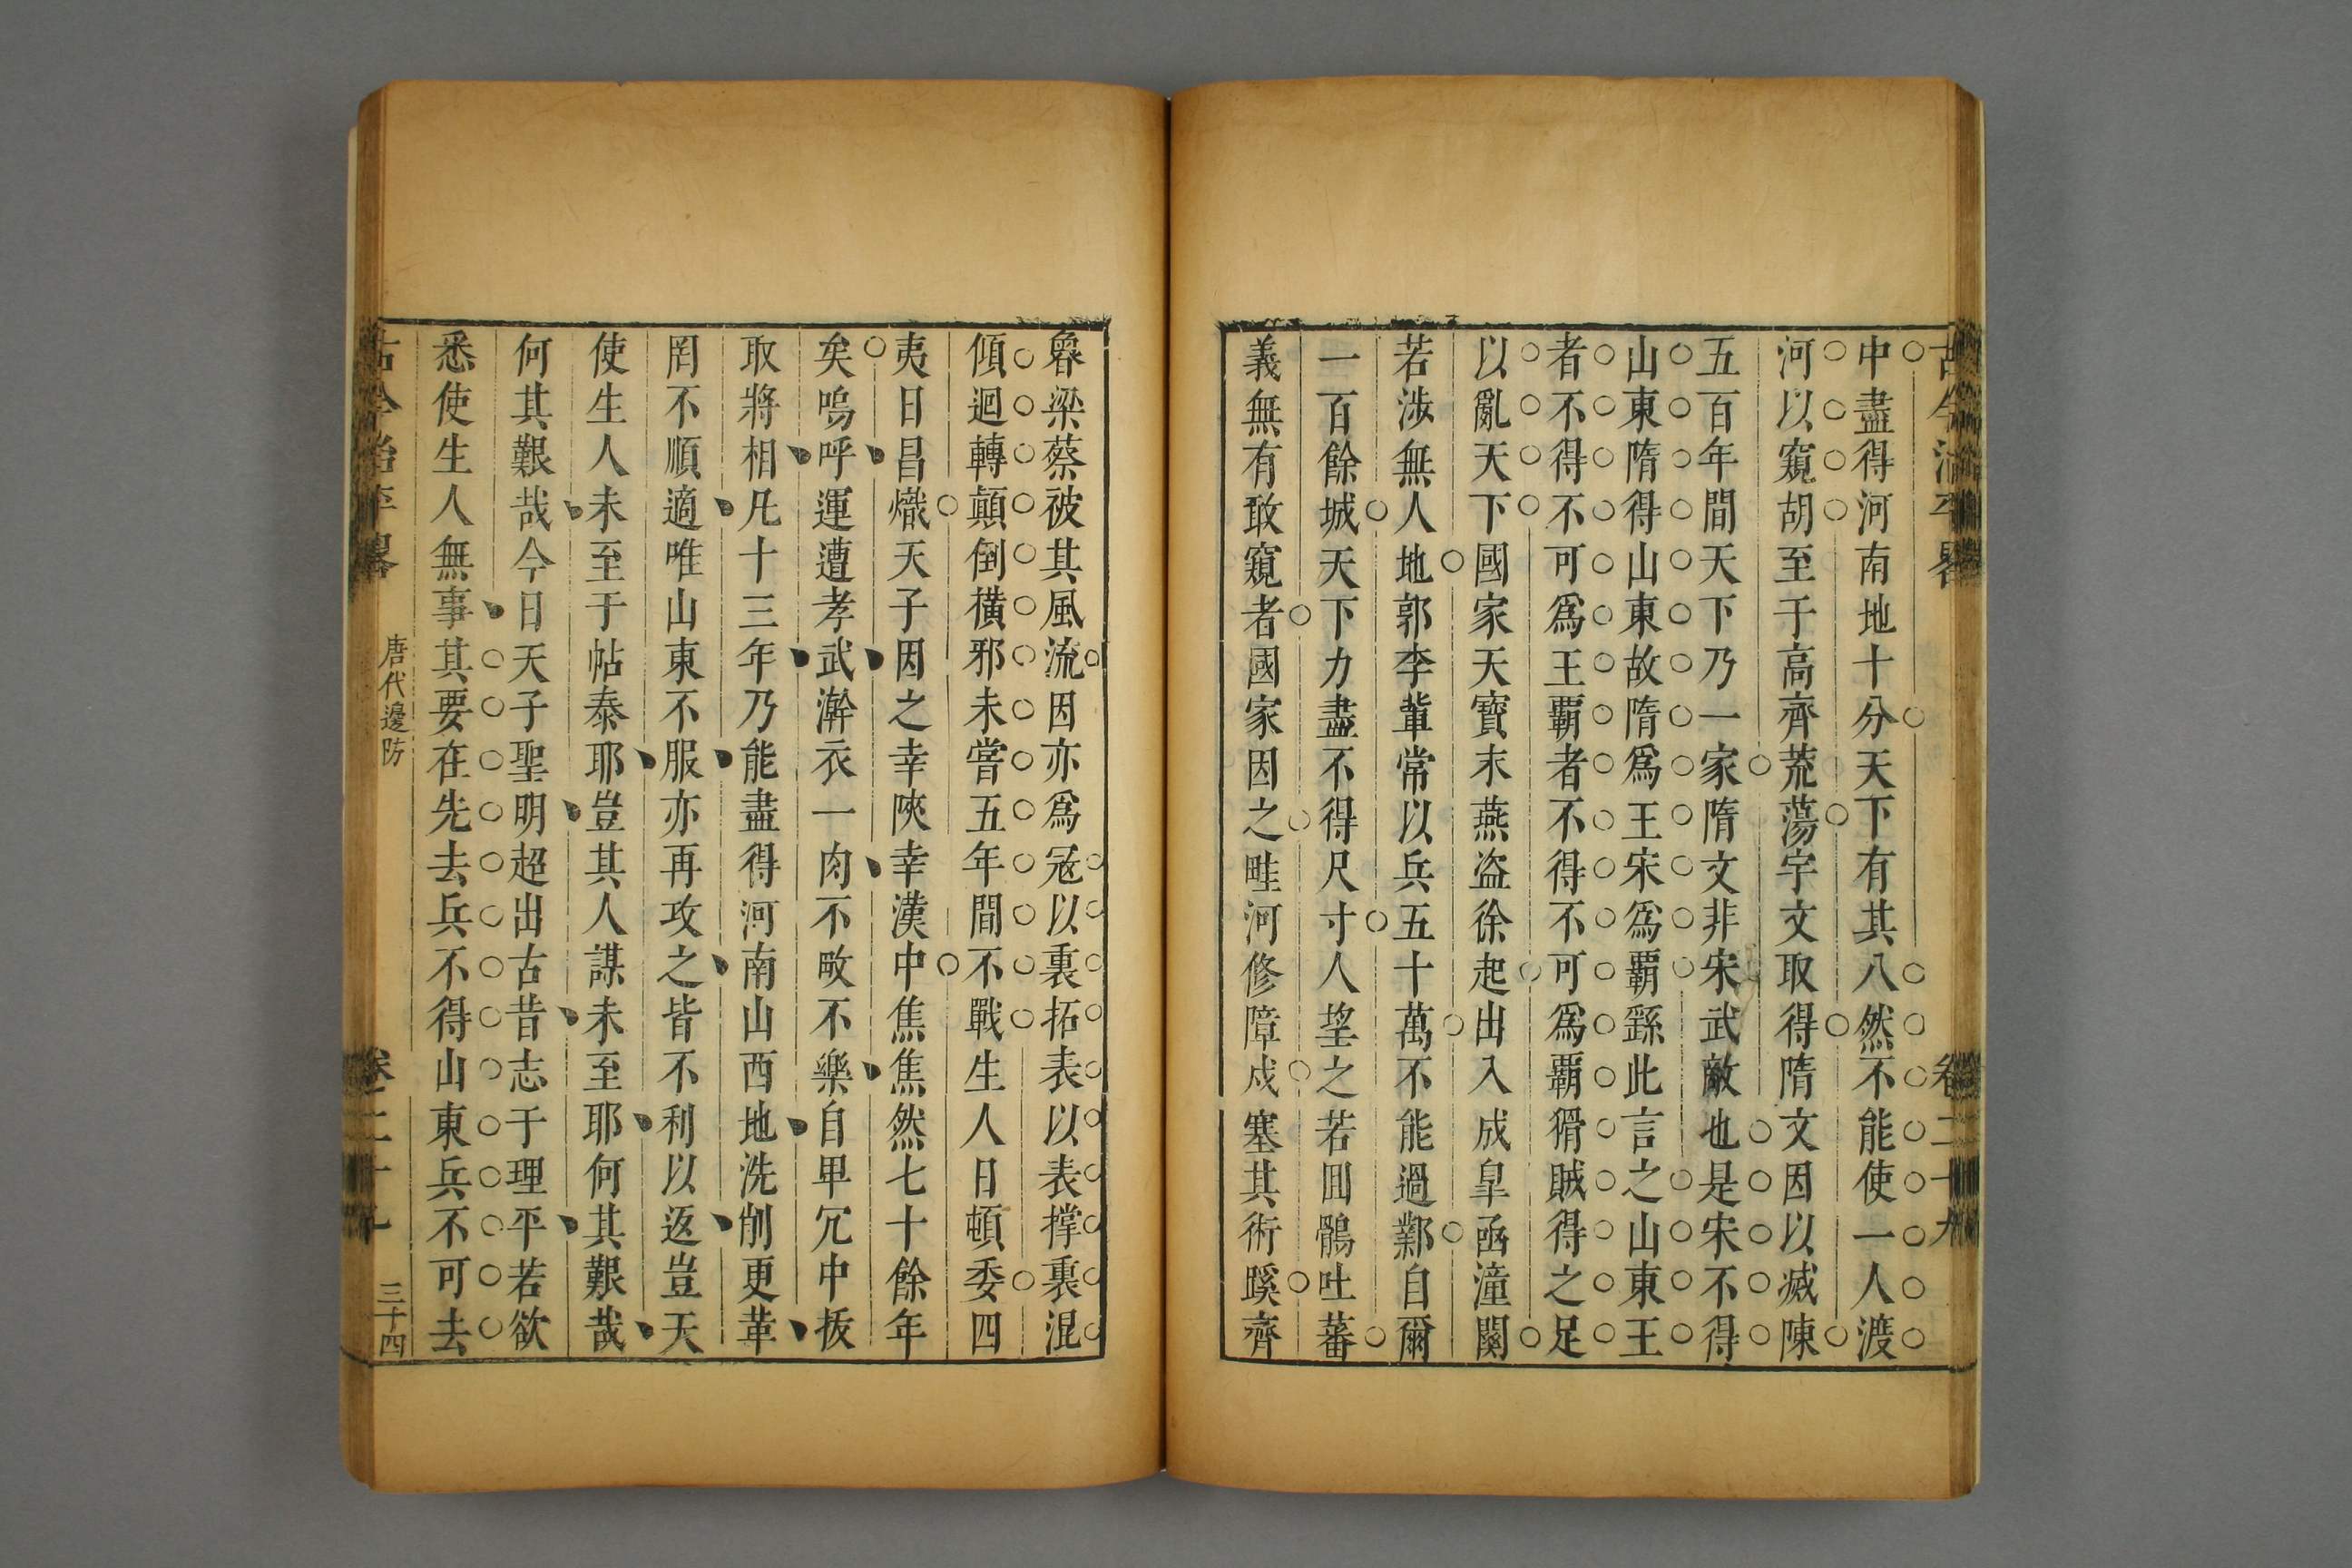 中盡得河南地十分天下有其八然不能使一人渡
河以窺胡至于高齊荒蕩宇文取得隋文因以滅陳
五百年間天下乃一家隋文非宋武敵也是宋不得
山東隋得山東故隋爲王宋爲霸繇此言之山東王
者不得不可爲王霸者不得不可爲霸猾賊得之足
以亂天下國家天寶末燕盗徐起出入成皐函潼關
若涉無人地郭李輩常以兵五十萬不能過鄴自爾
一百餘城天下力盡不得尺寸人望之若回鶻吐蕃
義無有敢窺者國家因之畦河修障戍塞其術蹊齊
魯梁蔡被其風流因亦爲冦以裏拓表以表撑裏混
傾迴轉顛倒橫邪未嘗五年間不戰生人日頓委四
夷日昌熾天子因之幸陜幸漢中焦焦然七十餘年
矣嗚呼運遭孝武澣衣一肉不畋不樂自甲冗中拔
取將相凡十三年乃能盡得河南山西地洗削更革
罔不順適唯山東不服亦再攻之皆不利以返豈天
使生人未至于帖泰耶豈其人謀未至耶何其艱哉
何其艱哉今日天子聖明超出古昔志于理平若欲
悉使生人無事其要在先去兵不得山東兵不可去
古今治平畧
唐代邊防
卷二十九
三十四